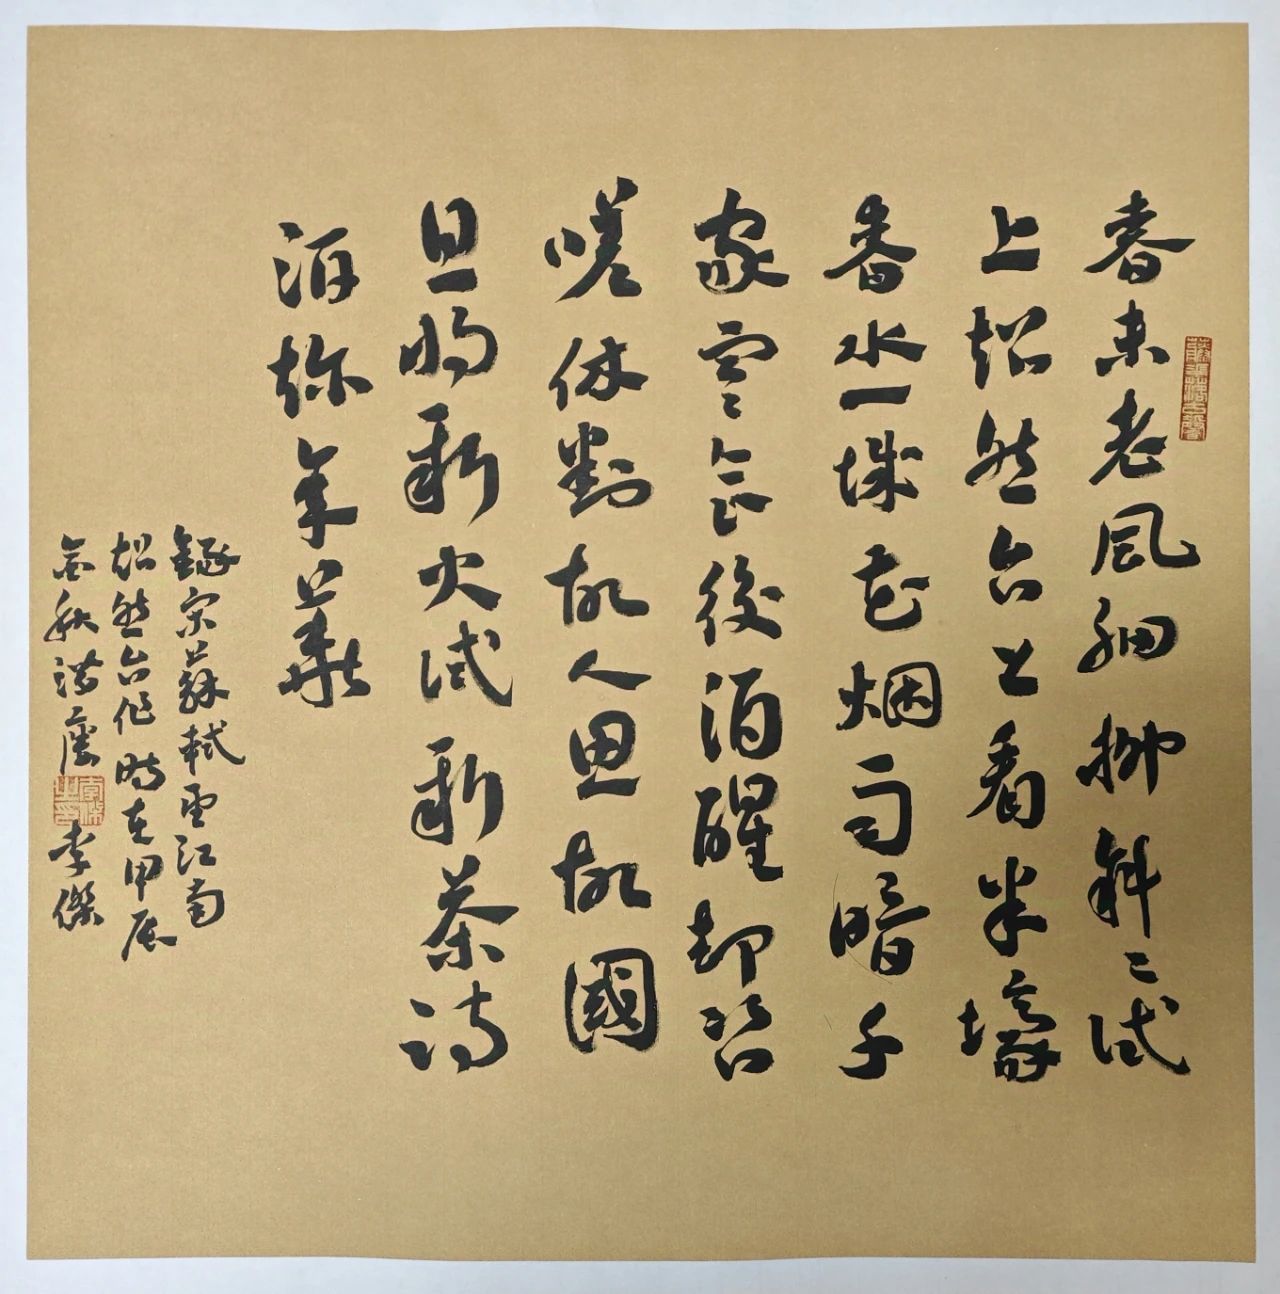 春未老風細柳斜斜試
上超然台上看半壕
春水一城花烟雨暗千
家寒食後酒醒却咨
嗟休對故人思故國
且將新火試新茶詩
酒趁年華
錄宋蘇軾望江南
超然台作時在甲辰
金秋 李傑
李傑之印